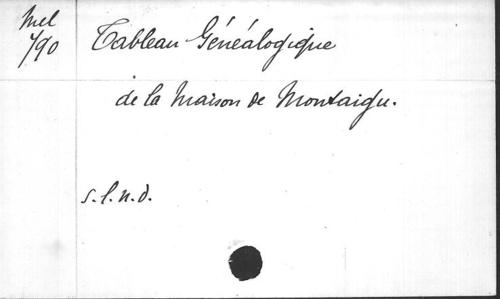 Mel
190
Tableau Généalogique
de la Maison de Montaigu.
s.l.n.d.